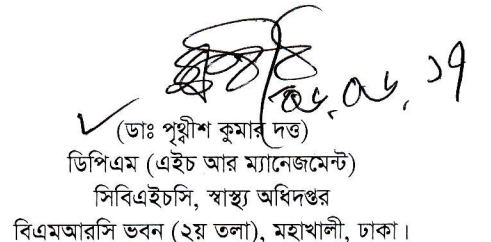 (ডাঃ পৃথ্বীশ কুমার দত্ত)
ডিপিএম (এইচ আর ম্যানেজমেন্ট)
সিবিএইচসি, স্বাস্থ্য অধিদপ্তর
বিএমআরসি ভবন (২য় তলা), মহাখালী, ঢাকা।